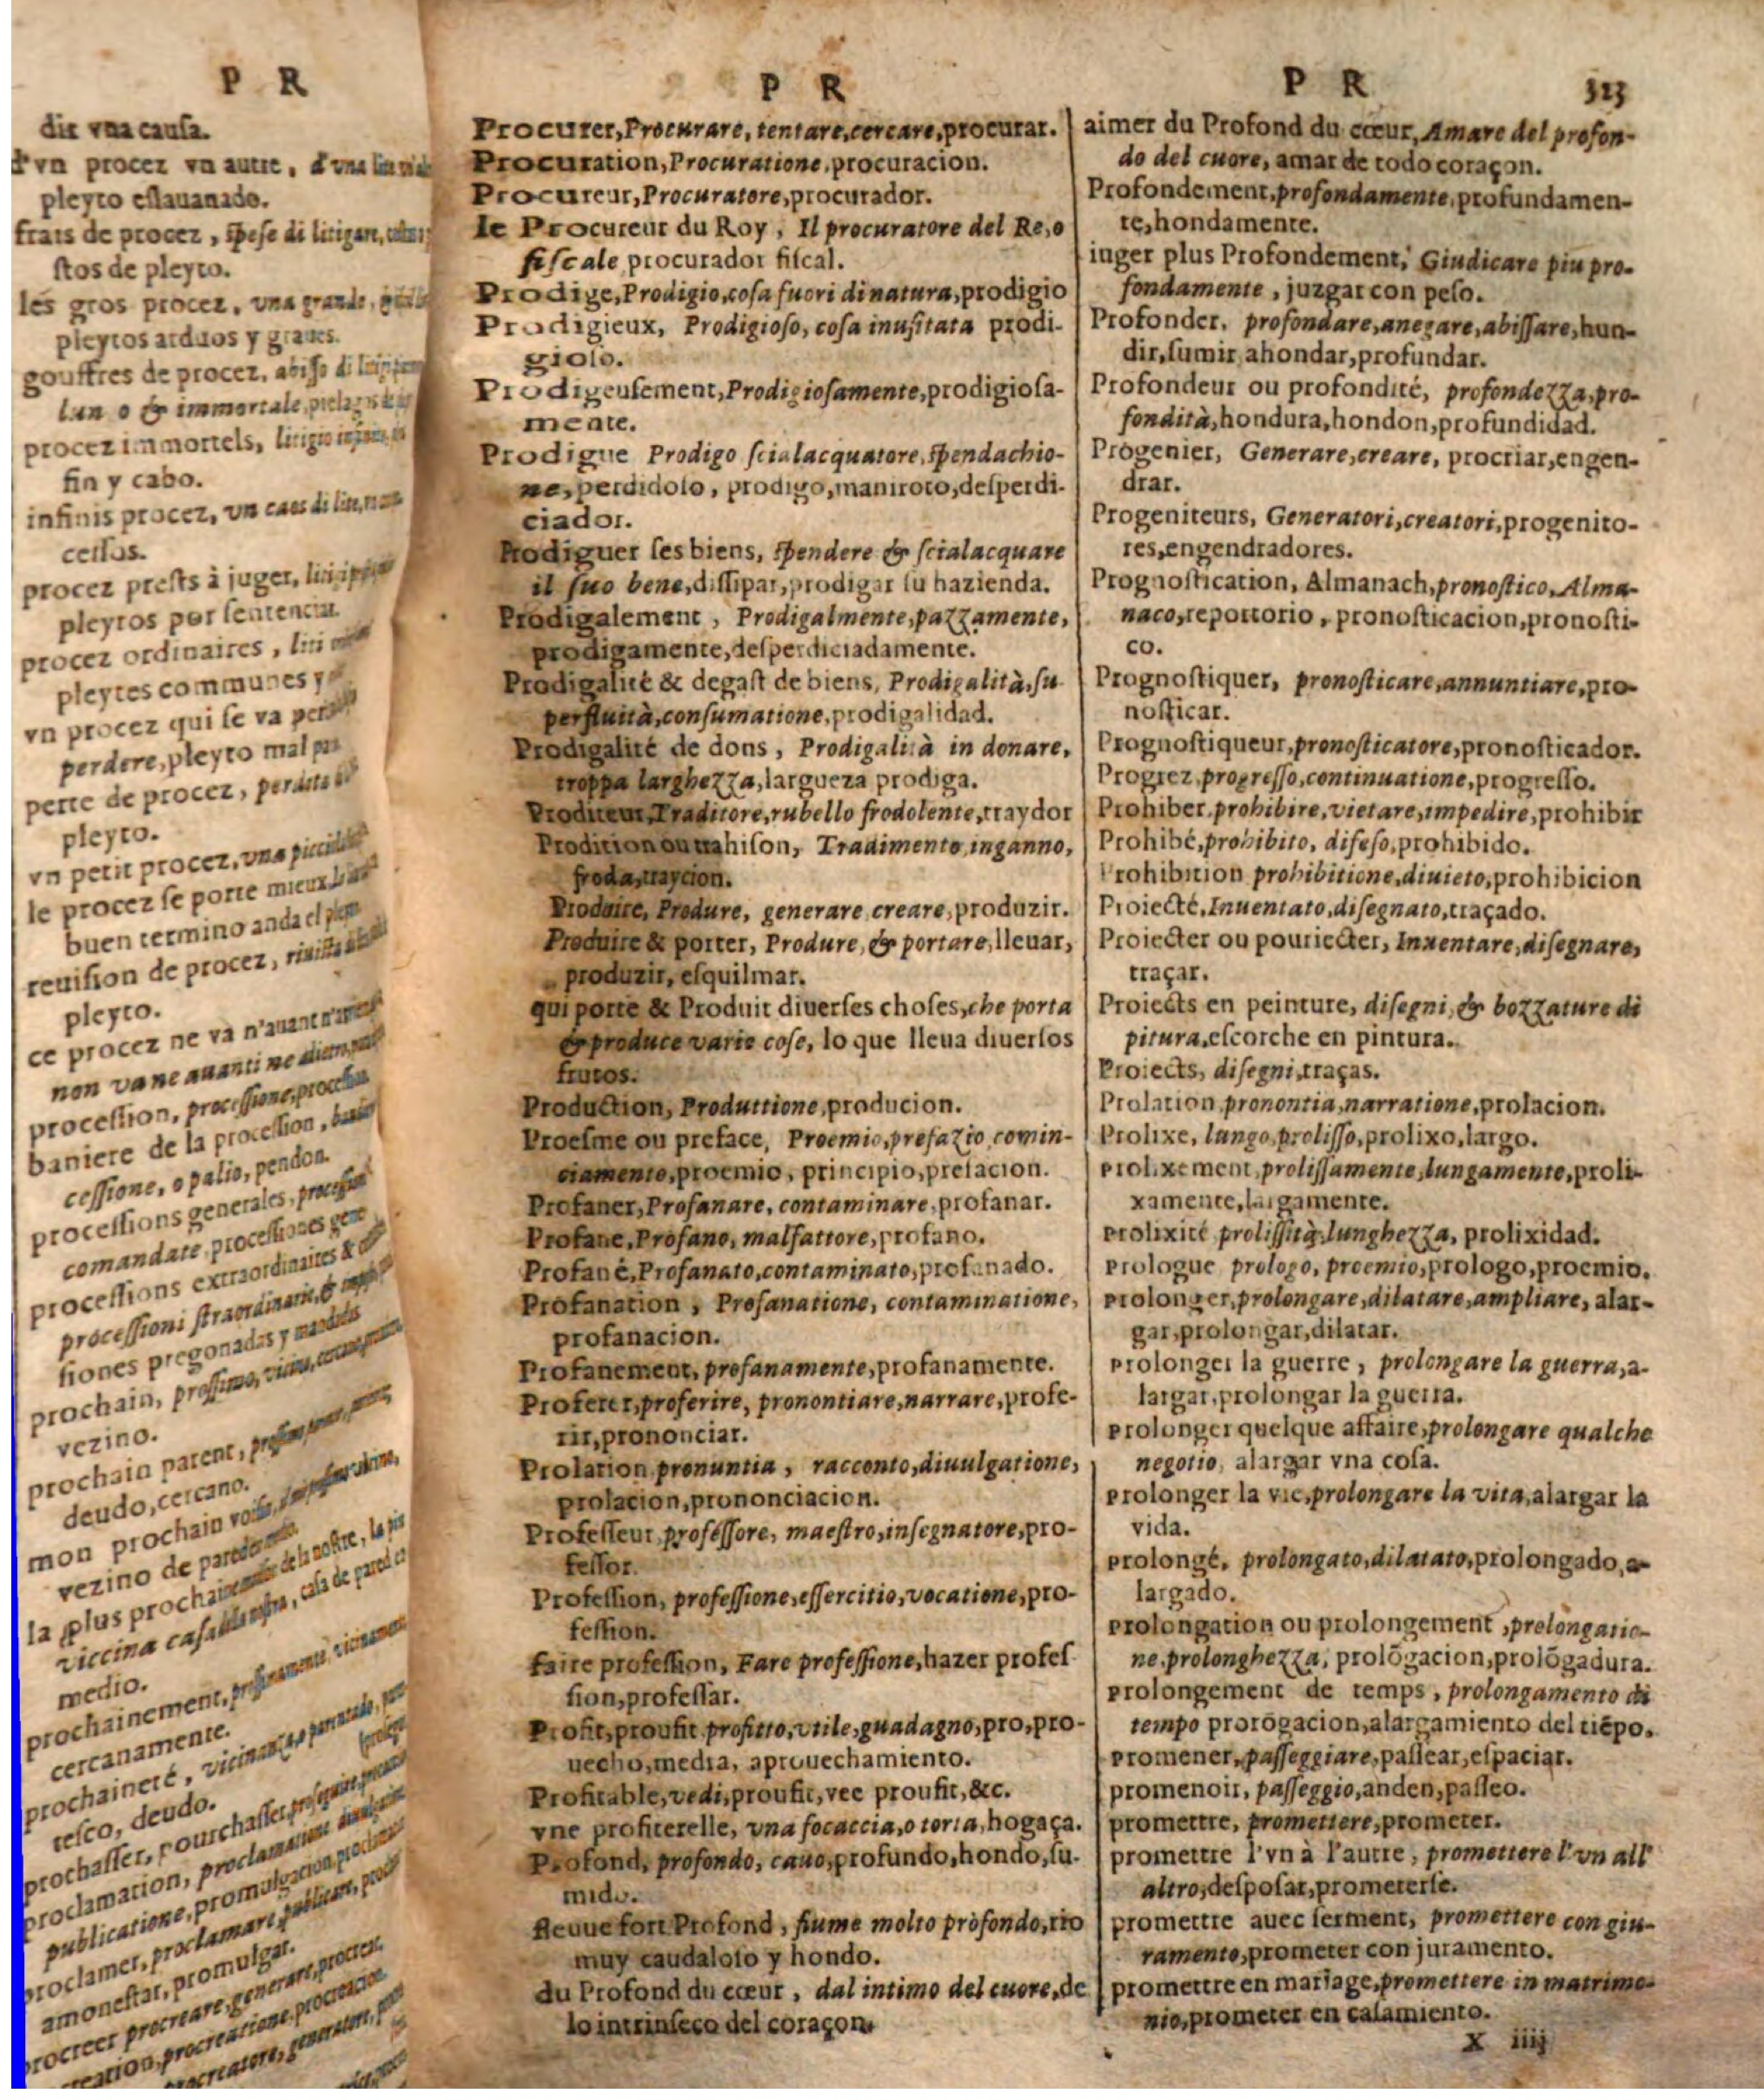 P R
dir vna causa.
d'vn procez vn autre, d'vna
pleyto eslauanado.
frais de procez, spese di litigare,
stos de pleyto.
les gros procez, vna grande,
pleytos arduos y graues.
gouffres de procez, abisso di
immortale
procez immortels, litigio
fin y cabo.
infinis procez, vn caos di lite,
cessos.
procez prests à juger, liti
pleytos por sentenciar.
procez ordinaires, liti
pleytes communes y
vn procez qui se va
perdere, pleyto mal
perte de procez, perdita
pleyto.
vn petit procez, vna
le procez se porte mieux
buen termino anda el
reuision de procez,
pleyto.
ce procez ne va n'auant
non va ne auanti ne
procession, processione,
baniere de la procession,
cessione, o palio, pendon.
processions generales,
comandate, processiones
processions extraordinaires &
processioni straordinarie, &
siones pregonadas y mandadas
prochain, prossimo, vicino,
vezino.
prochain parent,
deudo, cercano.
mon prochain
vezino de
la plus prochaine de la nostre, la
viccina casa, casa de pared en
medio.
prochainement,
cercanamente.
prochaineté, vicinanza, o parentado,
tesco, deudo.
prochasser, pourchasser,
proclamation, proclamatione
publicatione, promulgacion
proclamer, proclamare, publicare,
amonestar, promulgar.
procreer procreare, generare, procrear.
procreatione, procreacion
generatore,
P R
Procurer, Procurare, tentare, cercare, procurar.
Procuration, Procuratione, procuracion.
Procureur, Procuratore, procurador.
le Procureur du Roy, Il procuratore del Re, o
fiscale procurador fiscal.
Prodige, Prodigio, cosa fuori di natura, prodigio
Prodigieux, Prodigioso, cosa inusitata prodi-
gioso.
Prodigeusement, Prodigiosamente, prodigiosa-
mente.
Prodigue Prodigo scialacquatore, spendachio-
ne, perdidoso, prodigo, maniroto, desperdi-
ciador.
Prodiguer ses biens, spendere & scialacquare
il suo bene, dissipar, prodigar su hazienda.
Prodigalement, Prodigalmente, pazzamente,
prodigamente, desperdiciadamente.
Prodigalité & degast de biens, Prodigalità, su
perfluità, consumatione, prodigalidad.
Prodigalité de dons, Prodigalità in donare,
troppa larghezza, largueza prodiga.
Proditeur, Traditore, rubello frodolente, traydor
Prodition ou trahison, Tradimento, inganno,
froda, traycion.
Produire, Produre, generare creare, produzir.
Produire & porter, Produre, & portare, lleuar,
produzir, esquilmar.
qui porte & Produit diuerses choses, che porta
& produce varie cose, lo que lleua diuersos
frutos.
Production, Produttione, producion.
Proesme ou preface, Proemio, prefazio, comin-
ciamento, proemio, principio, prefacion.
Profaner, Profanare, contaminare, profanar.
Profane, Profano, malfattore, profano.
Profané, Profanato, contaminato, profanado.
Profanation, Profanatione, contaminatione,
profanacion.
Profanement, profanamente, profanamente.
Proferer, proferire, pronontiare, narrare, profe-
rir, prononciar.
Prolation pronuntia, racconto, diuulgatione,
prolacion, prononciacion.
Professeur professore, maestro, insegnatore, pro-
fessor.
Profession, professione, essercitio, vocatione, pro-
fession.
faire profession, Fare professione, hazer profes
sion, professar.
Profit, proufit profitto, vtile, guadagno, pro, pro-
uecho, media, aprouechamiento.
Profitable, vedi, proufit, vee proufit, &c.
vne profiterelle, vna focaccia, o torta, hogaça.
Profond, profondo, cauo, profundo, hondo, su-
mido.
fleuue fort Profond, fiume molto profondo, rio
muy caudaloso y hondo.
du Profond du cœur, dal intimo del cuore, de
lo intrinseco del coraçon.
P R 323
aimer du Profond du cœur, Amare del profon-
do del cuore, amar de todo coraçon.
Profondement, profondamente, profundamen-
te, hondamente.
iuger plus Profondement, Giudicare piu pro-
fondamente, juzgar con peso.
Profonder, profondare, anegare, abissare, hun-
dir, sumir ahondar, profundar.
Profondeur ou profondité, profondezza, pro-
fondità, hondura, hondon, profundidad.
Progenier, Generare, creare, procriar, engen-
drar.
Progeniteurs, Generatori, creatori, progenito-
res, engendradores.
Prognostication, Almanach, pronostico, Alma-
naco, reportorio, pronosticacion, pronosti-
co.
Prognostiquer, pronosticare, annuntiare, pro-
nosticar.
Prognostiqueur, pronosticatore, pronosticador.
Progrez progresso, continuatione, progresso.
Prohiber, prohibire, vietare, impedire, prohibir
Prohibé, prohibito, difeso, prohibido.
Prohibition prohibitione, diuieto, prohibicion
Proiecté, Inuentato, disegnato, traçado.
Proiecter ou pouriecter, Inuentare, disegnare,
traçar.
Proiects en peinture, disegni, & bozzature di
pitura, escorche en pintura.
Proiects, disegni, traças.
Prolation pronontia, narratione, prolacion.
Prolixe, lungo, prolisso, prolixo, largo.
prolixement, prolissamente, lungamente, proli-
xamente, largamente.
prolixité prolissità, lunghezza, prolixidad.
prologue prologo, proemio, prologo, proemio.
prolonger, prolongare, dilatare, ampliare, alar-
gar, prolongar, dilatar.
prolonger la guerre, prolongare la guerra, a-
largar, prolongar la guerra.
prolonger quelque affaire, prolongare qualche
negotio, alargar vna cosa.
prolonger la vie, prolongare la vita, alargar la
vida.
prolongé, prolongato, dilatato, prolongado, a-
largado.
prolongation ou prolongement, prolongatio-
ne, prolonghezza, prolõgacion, prolõgadura.
prolongement de temps, prolongamento di
tempo prorõgacion, alargamiento del tiẽpo.
promener, passeggiare, passear, espaciar.
promenoir, passeggio, anden, passeo.
promettre, promettere, prometer.
promettre l'vn à l'autre, promettere l'vn all'
altro, desposar, prometerse.
promettre auec serment, promettere con giu-
ramento, prometer con juramento.
promettre en mariage, promettere in matrimo-
nio, prometer en casamiento.
X iiij